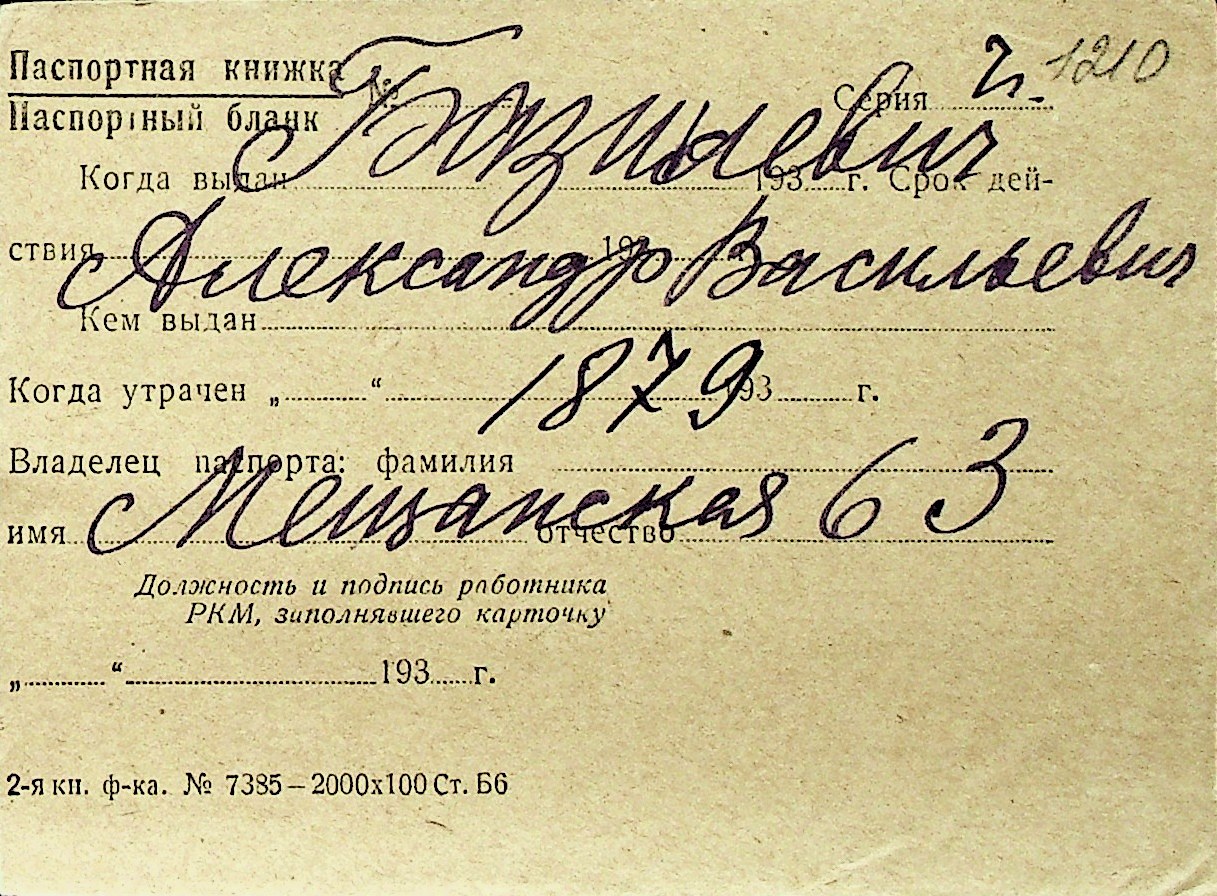 Паспортная книжка №
Серия ч. 1210
Паспортный бланк
Базилевич
Когда выдан 193 г. Срок дей-
ствия 193
Александр Васильевич
Кем выдан
Когда утрачен „ “ 193 г.
1879
Владелец паспорта: фамилия
Мещанская 63
имя отчество
Должность и подпись работника
РКМ, заполнявшего карточку
„ “ 193 г.
2-я кн. ф-ка. № 7385–2000х100 Ст. Б6